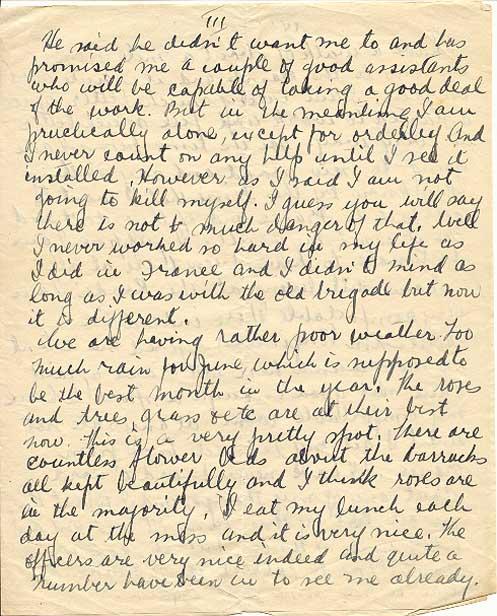 III
He said he didn't want me to and has
promised me a couple of good assistants
who will be capable of taking a good deal
of the work. But in the meantime I am
practically alone, except for orderley and
I never count on any help until I see it
installed. However as I said I am not
going to kill myself. I guess you will say
there is not much danger of that. Well
I never worked so hard in my life as
I did in France and I didn't mind as
long as I was with the old brigade but now
it is different.
We are having rather poor weather. Too
much rain for June, which is supposed to
be the best month in the year. The roses
and trees, grass etc are at their best
now. This is a very pretty spot. There are
countless flower beds about the barracks
all kept beautifully and I think roses are
in the majority. I eat my lunch each
day at the mess and it is very nice. The
officers are very nice indeed and quite a
number have been in to see me already.